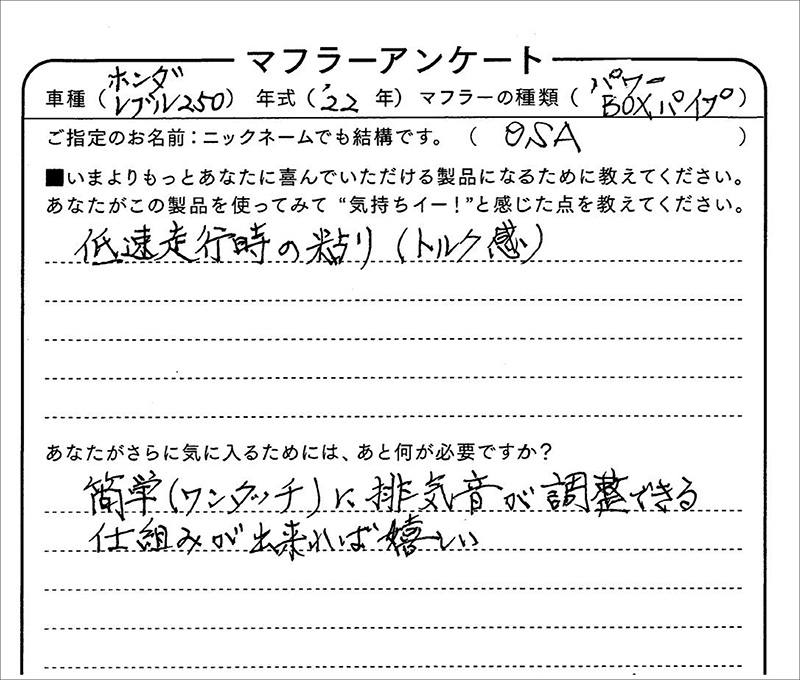 マフラーアンケート
車種（ホンダ レブル250）年式（'22 年）マフラーの種類（パワーBOXパイプ）
ご指定のお名前：ニックネームでも結構です。（ OSA ）
■いまよりもっとあなたに喜んでいただける製品になるために教えてください。
あなたがこの製品を使ってみて“気持ちイー！”と感じた点を教えてください。
低速走行時の粘り（トルク感）
あなたがさらに気に入るためには、あと何が必要ですか？
簡学（ワンタッチ）に排気音が調整できる
仕組みが出来れば嬉しい